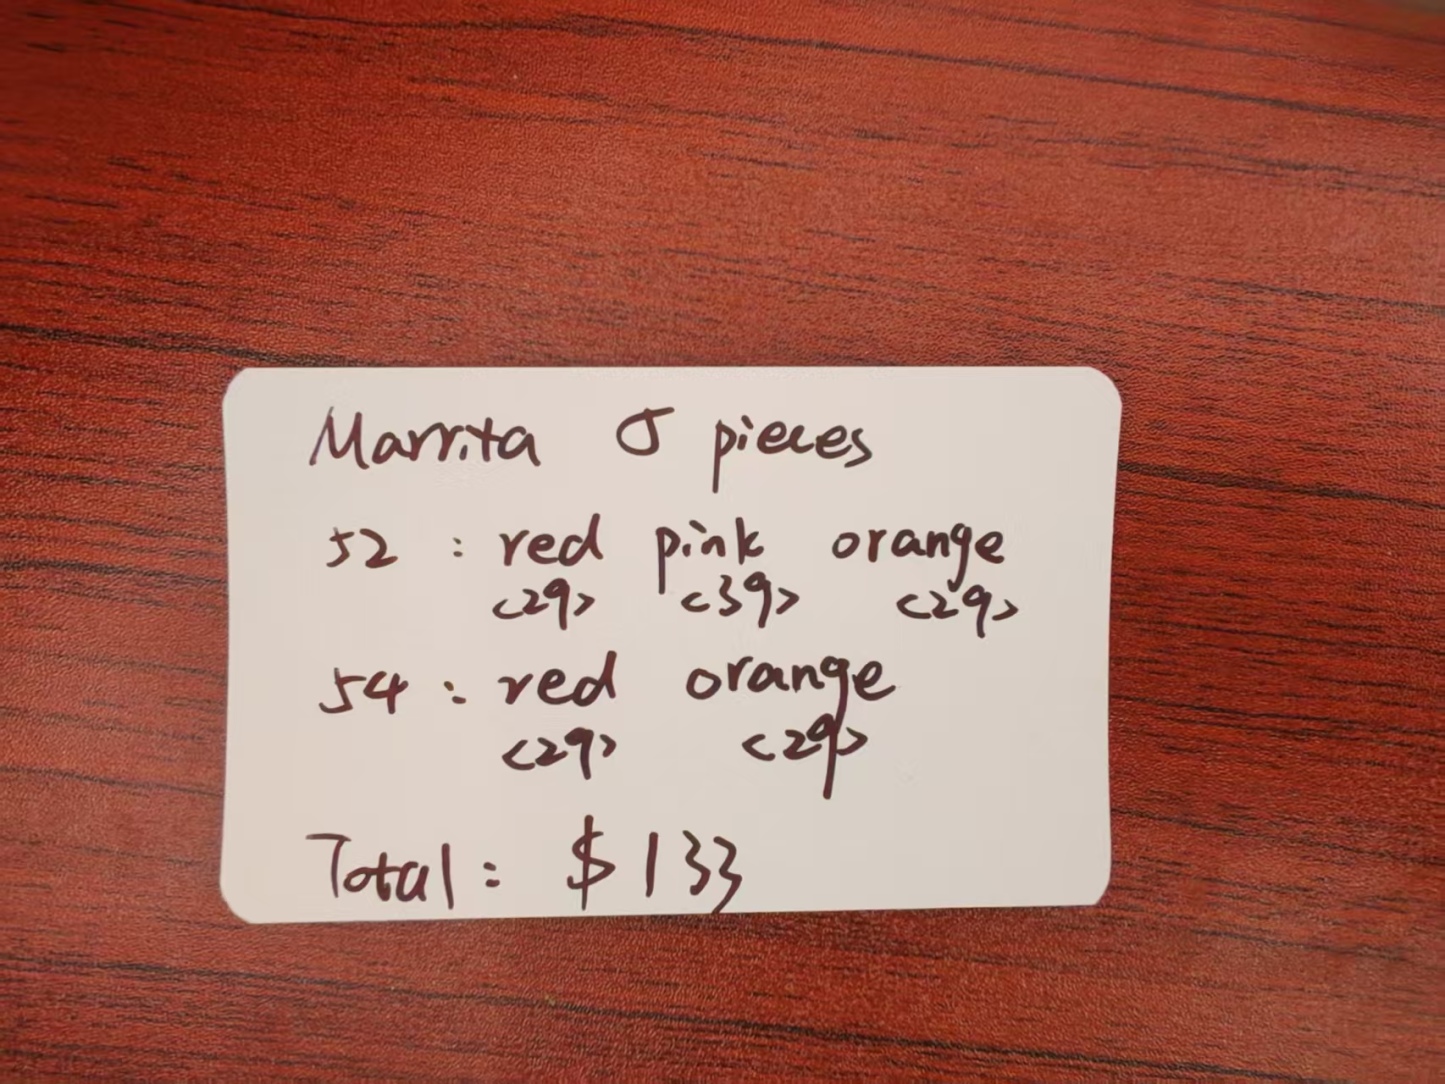 Marrita 5 pieces
52 : red pink orange
<29> <39> <29>
54 : red orange
<29> <29>
Total : $133